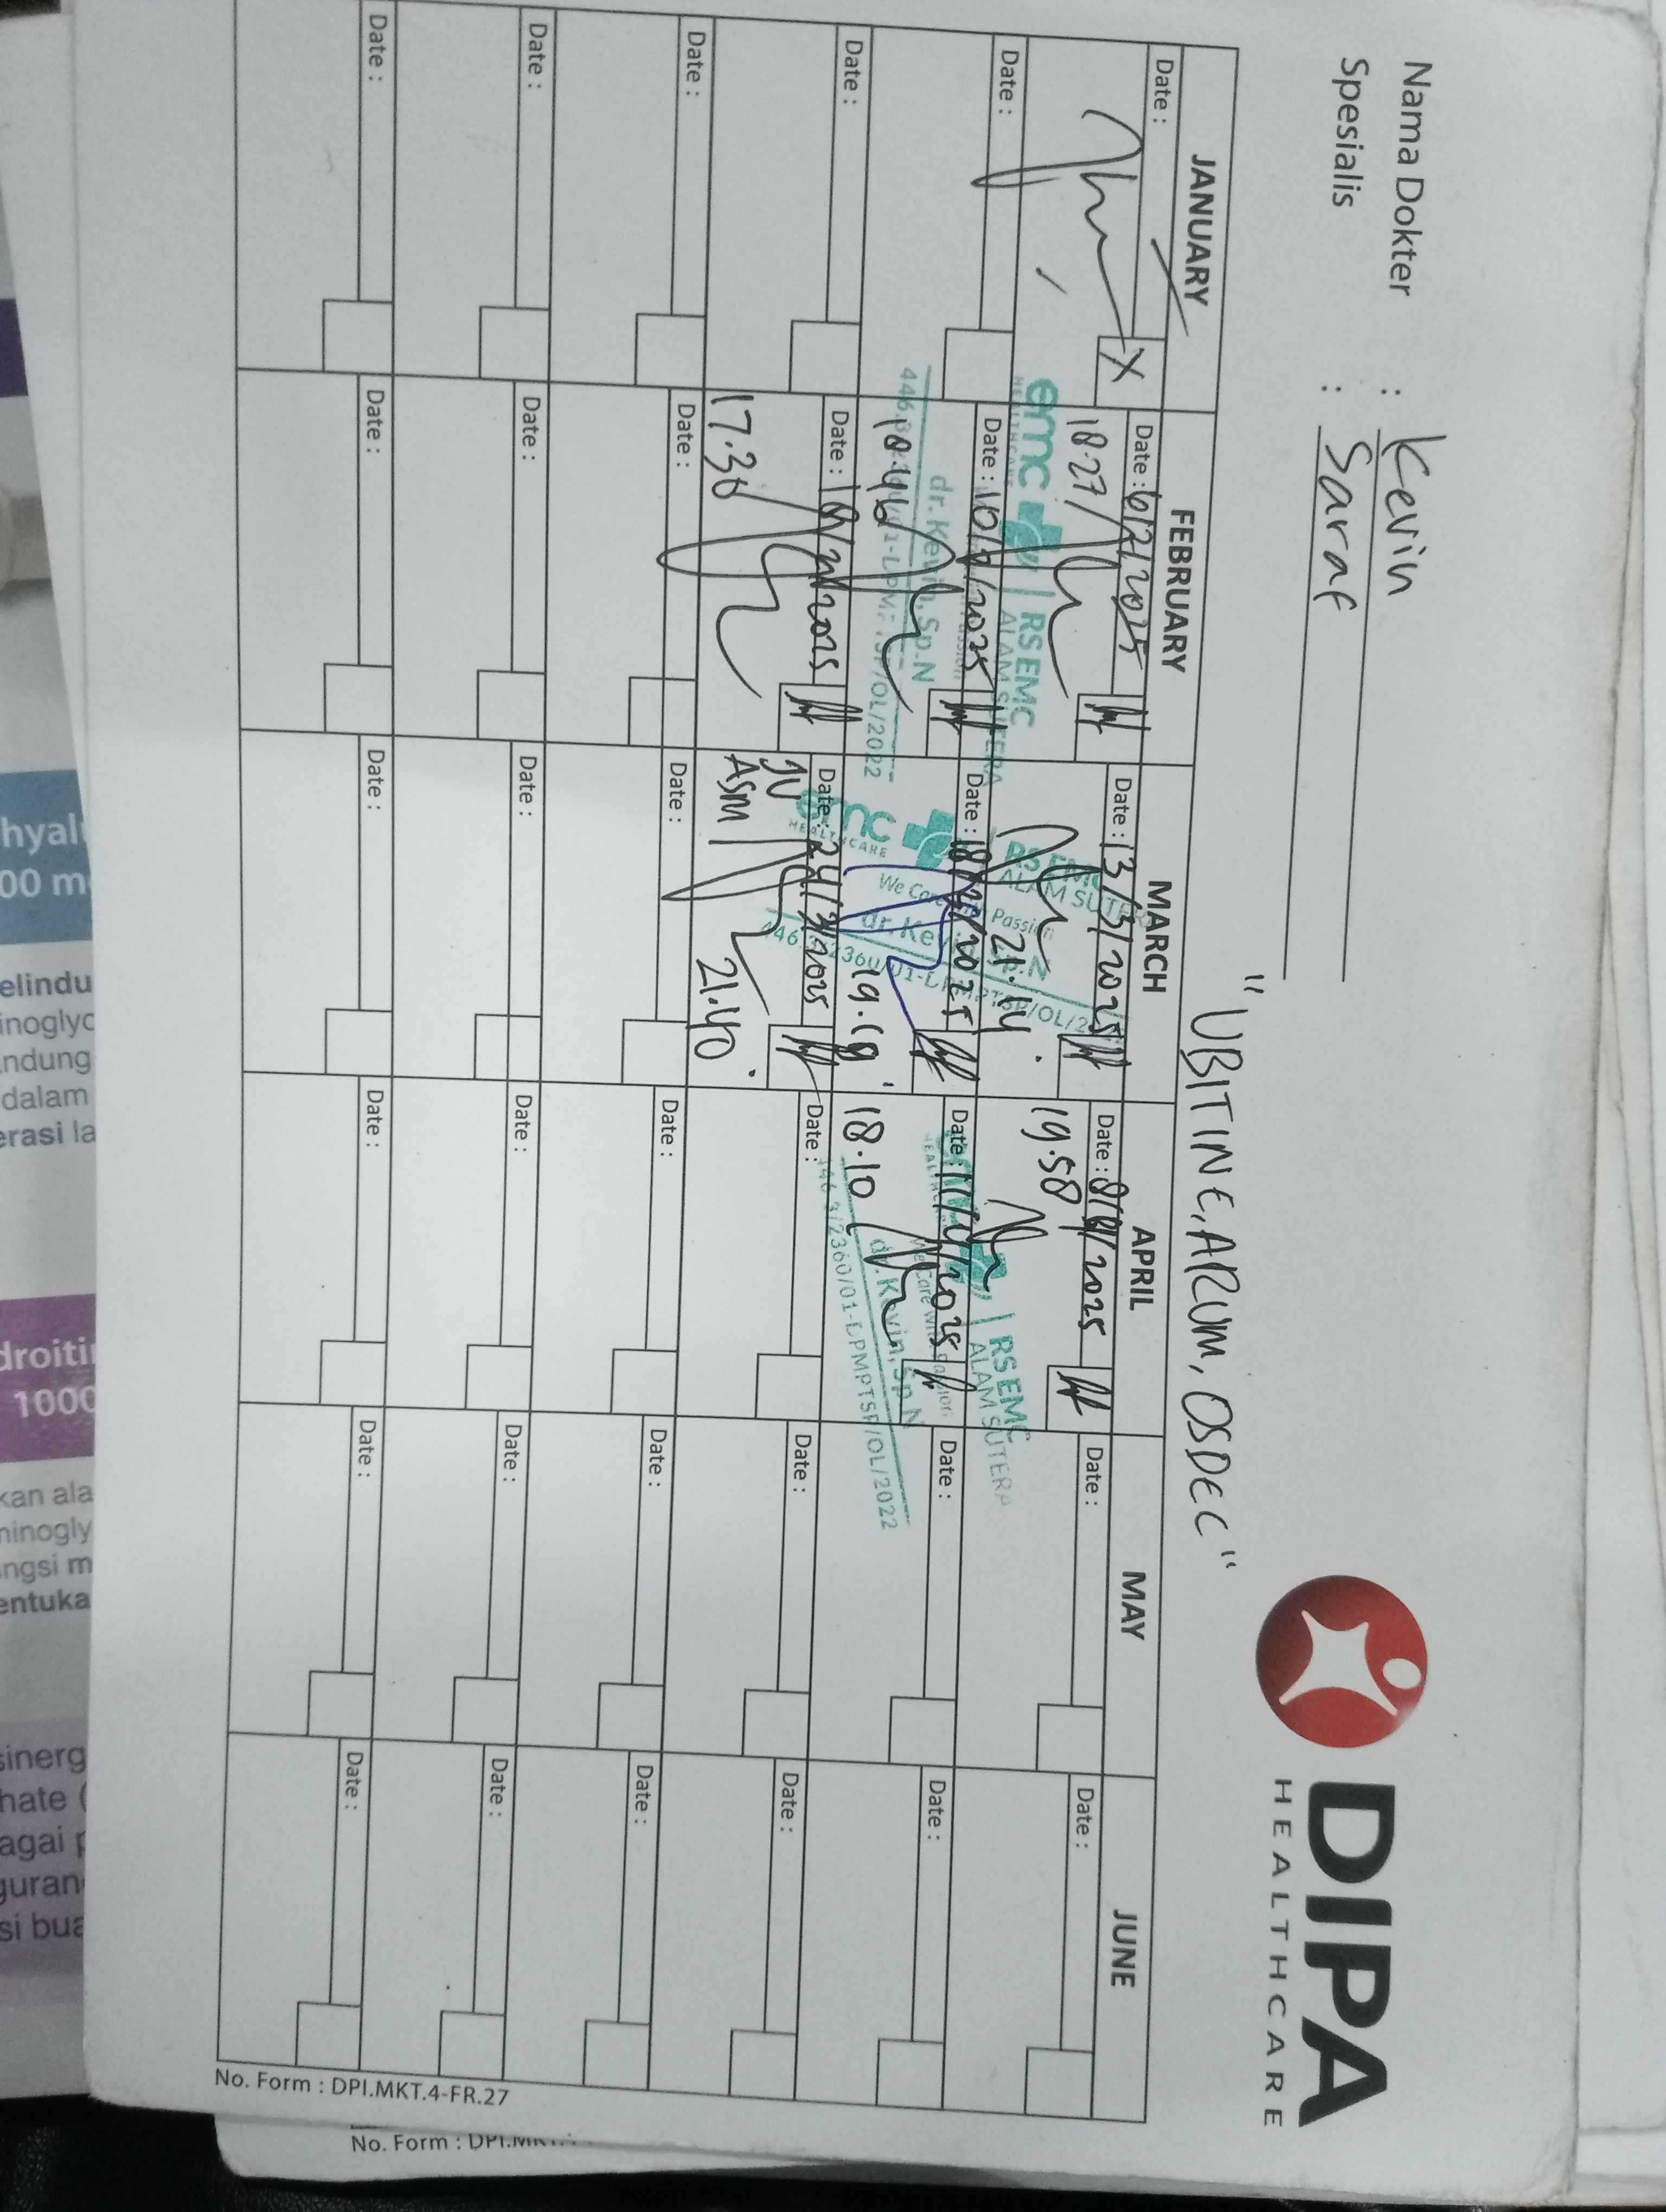 Nama Dokter : Kevin
Spesialis : Saraf
DIPA
HEALTHCARE
"UBITINE, ARUM, OSDEC"
JANUARY FEBRUARY MARCH APRIL MAY JUNE
Date : Date : 6/2/2025 Date : 13/3/2025 Date : 8/4/2025 Date : Date :
X 18.27 21.14 19.58
emc RS EMC
HEALTHCARE ALAM SUTERA
Date : Date : Date : Date : Date : Date :
18.10
dr. Kevin, Sp.N
RS EMC
ALAM SUTERA
emc
HEALTHCARE
We Care with Passion
dr. Kevin, Sp.N
RS EMC
ALAM SUTERA
dr. Kevin, Sp.N
446.3/2360/01-DPMPTSP/OL/2022
Date : Date : Date : 24/3/2025 Date : Date : Date :
17.38 21.40
Date : Date : Date : Date : Date : Date :
Date : Date : Date : Date : Date : Date :
Date : Date : Date : Date : Date : Date :
No. Form : DPI.MKT.4-FR.27
No. Form :
hyal
00 m
elindu
inoglyc
ndung
dalam
erasi la
droiti
1000
kan ala
ninogly
ngsi m
entuka
sinerg
hate (
agai p
guran
si bua